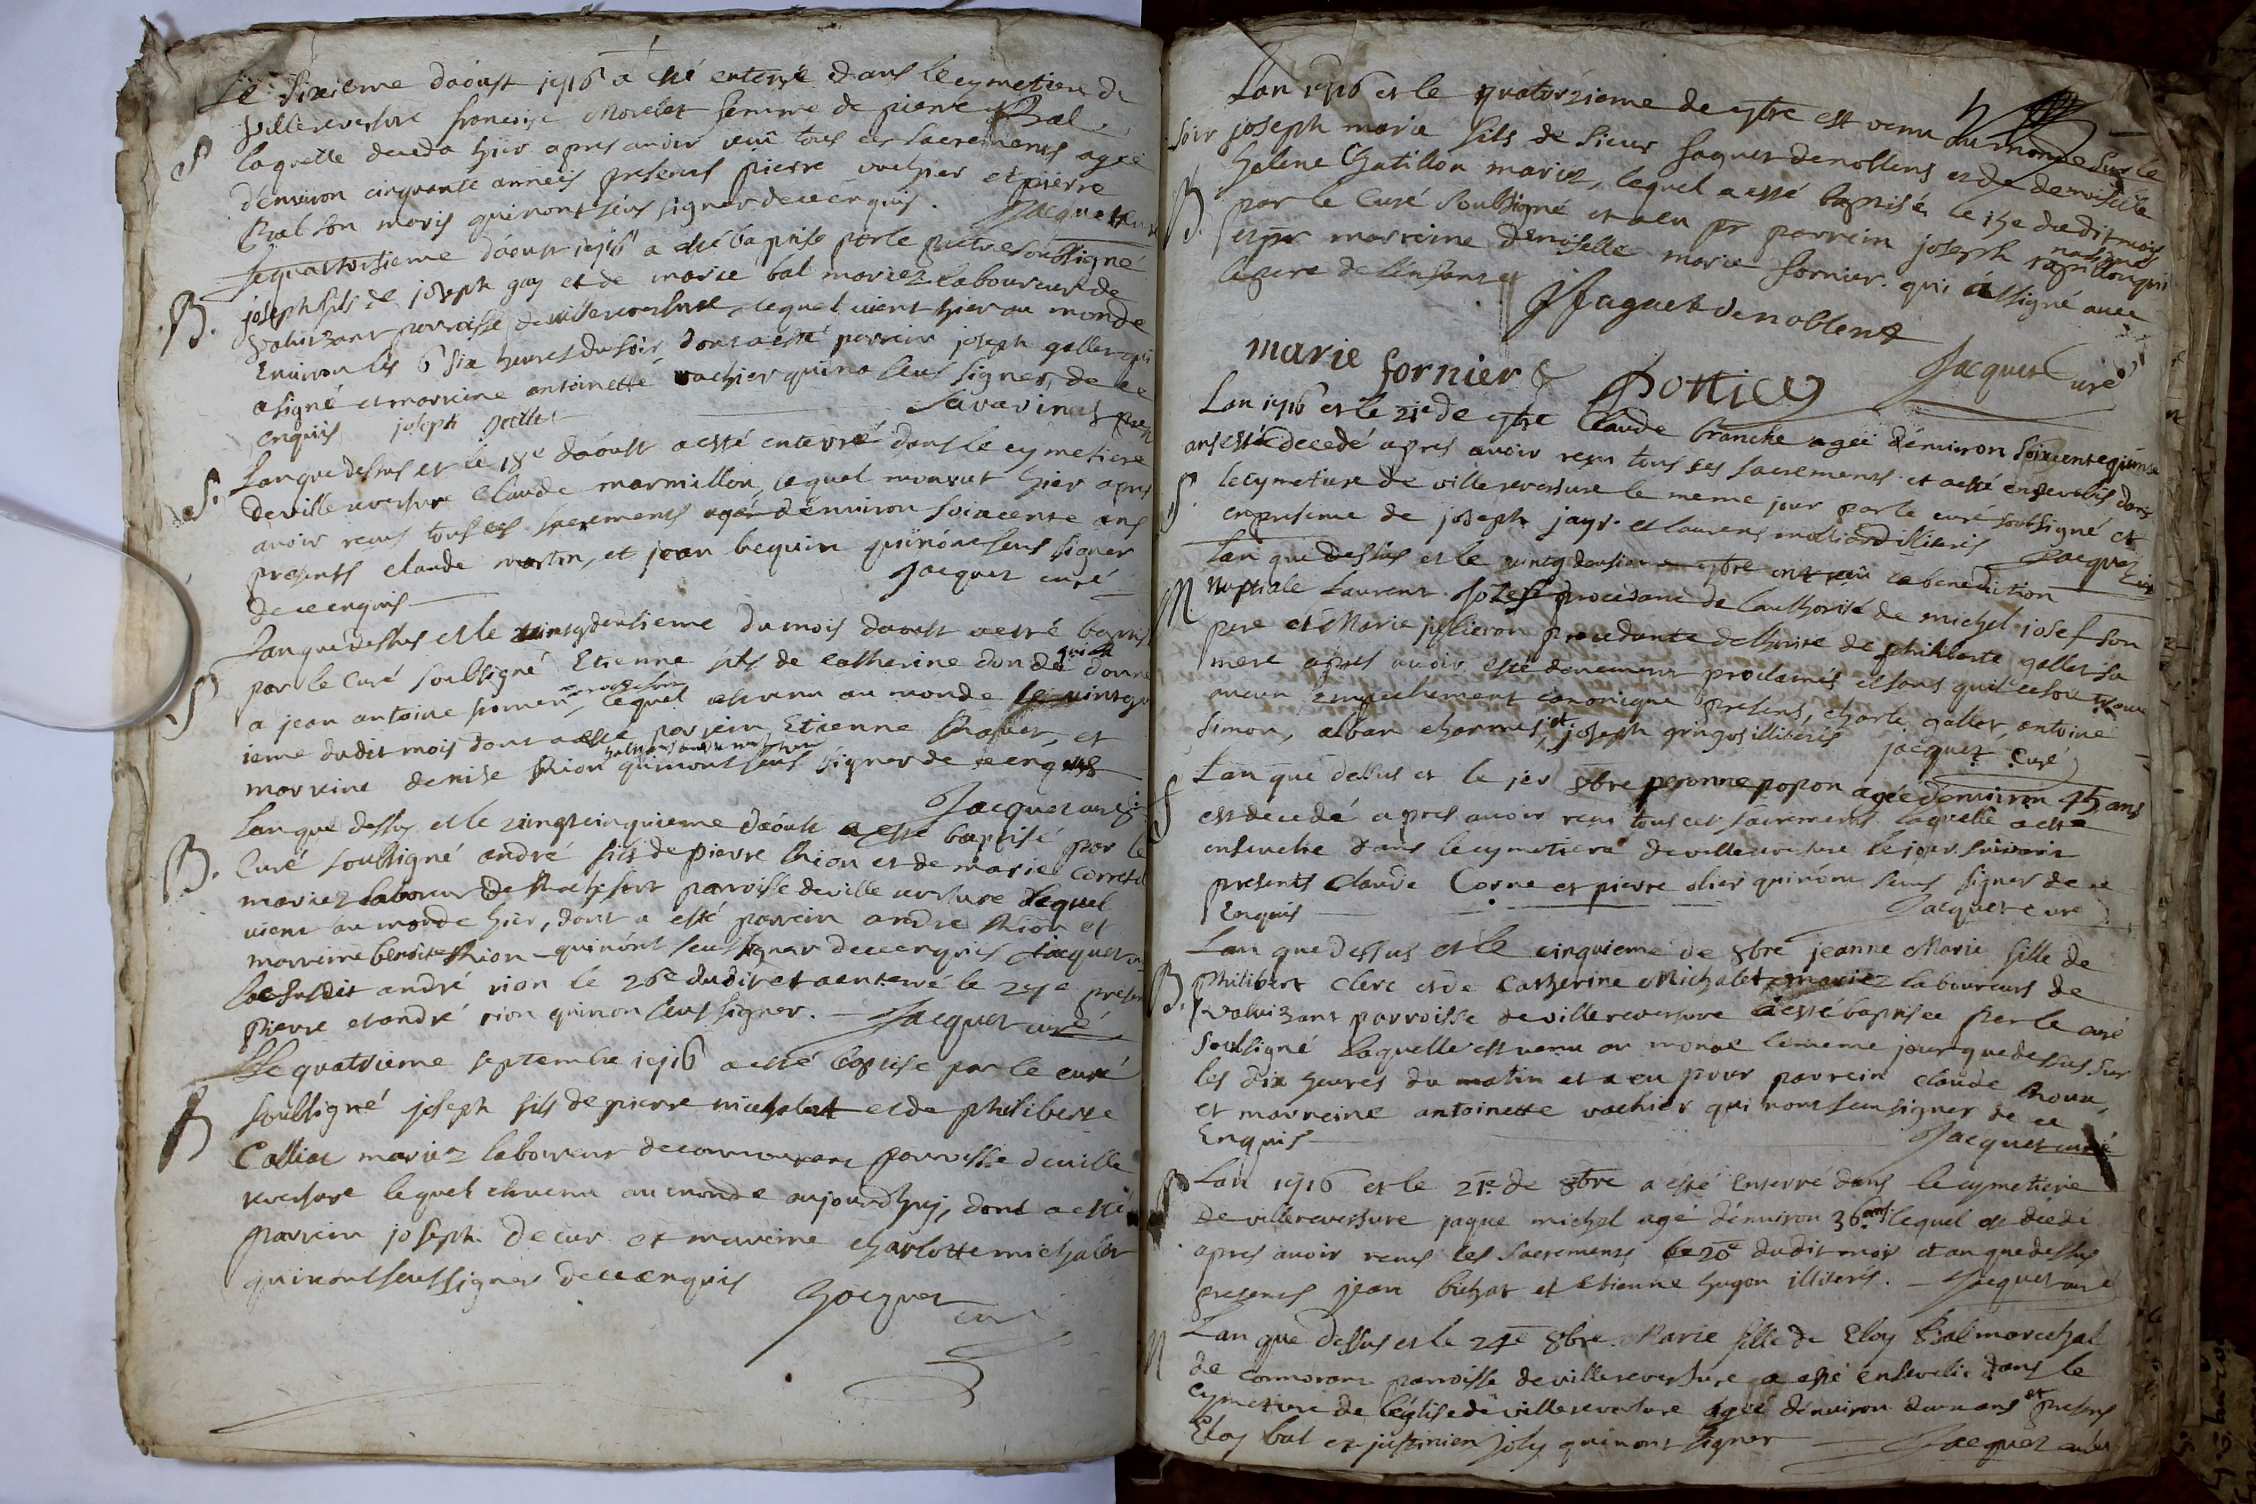 Le sixieme daoust 1716 a esté enterré dans le cymetiere de
villereversure francoise Morelet femme de pierre Bal
S laquelle deceda hier apres avoir receu tous ses sacrements agée
denviron cinquante années presents pierre et pierre
Bal son maris qui nont seus signer de ce enquis. Jacquet curé
Le quattorsieme daoust 1716 a esté baptise par le pretre soubsigné
B. joseph fils de joseph guy et de marie bal mariez laboureur de
valuizant parroisse de villereversure, lequel vient hier au monde
Environ les 6 six heures du soir dont a esté parrein joseph gallet qui
a signé et marreine antoinette vachier qui na seus signer, de ce
enquis joseph Gallet Savarin
S. Lan que dessus et le 18e daoust a esté enterré dans le cymetiere
de villereversure Claude marmillon, lequel mourut hier apres
avoir receus tous ses sacrements agé denviron soixcente ans
presents claude martin, et jean bequin qui nont seus signer
de ce enquis Jacquet curé
Lan que dessus et le vintgdeusieme du mois daoust a esté baptisé
par le Curé soubsigné Etienne fils de Catherine qui la donné
a jean antoine lequel est venu au monde le
ieme dudit mois dont a esté parrein Etienne et
marreine denise Rion qui nont seus signer de ce enquis
Jacquet curé
Lan que dessus et le vingtcinquieme daoust a esté baptisé par le
B. Curé soubsigné andré fils de pierre Rion et de marie
mariez laboureur de Rochefort parroisse de ville versure lequel
vient au monde hier, dont a esté parrein andre Rion et
marreine benoite Rion qui nont seus signer de ce enquis Jacquet
Le susdit andré rion le 26e dudit et a enterré le 27e presents
pierre et andré rion qui non seus signer. Jacquet curé
Le quatrieme septembre 1716 a esté baptisé par le curé
B soubsigné joseph fils de pierre michalet et de philiberte
Calliat mariez laboureur de cormorant parroisse de ville
reversure lequel est venu au monde aujourdhuy, dont a esté
parrein joseph Decur et mareine charlotte michalet
qui nont seus signer de ce enquis
Jacquet
curé
Lan 1716 et le quatorzieme de 7bre est venu au monde sur le
soir joseph marie fils de sieur Jaquet denoblens et de demoiselle
B. helene Chatillon mariez, lequel a esté baptisé le 15e dudit mois
par le Curé soubsigné et a eu pr parrein joseph
et pr marreine demoiselle marie fornier qui a signé avec
le pere de lenfant
JJaquet denoblens
marie fornier Jacquet Curé
Lan 1716 et le 21e de 7bre Claude branche agée denviron soixcentequinse
ans est decedé apres avoir receu tous ses sacrements et a esté ensevelis dans
S. le cymetiere de villereversure le meme jour par le curé soubsigné et
en presence de joseph jayr et laurens molliard illiterés Jacquet Curé
Lan que dessus et le vintgdeusieme 7bre ont receu la benediction
M. nuptiale Laurent Josef procedant de lauthorité de michel josef son
pere et Marie jullieron procedante de lhorité de philiberte gallet sa
mere apres avoir esté deuement proclamés et sans quil ce soit trouvé
aucun empechement canonique presens, charle gallet, antoine
simon, alban charmes, et joseph gringos illiterés Jacquet Curé
S Lan que dessus et le jer 8bre peronne popon agée denviron 45 ans
est decedé apres avoir receu tous ces sacrements laquelle a esté
ensevelie dans le cymetiere de villereversure le jour suivant
presents Claude Corne et pierre olier qui nont seus signer de ce
Enquis Jacquet curé
Lan que dessus et le cinquieme de 8bre jeanne Marie fille de
B. Philibert Clerc et de Catherine Michalet mariez laboureurs de
valuizant parroisse de villereversure a esté baptisee par le curé
soubsigné laquelle est venu au monde le meme jour que dessus sur
les dix heures du matin et a eu pour parrein claude
et marreine antoinette vachier qui nont seu signer de ce
Enquis Jacquet curé
Lan 1716 et le 21e de 8bre a esté enterré dans le cymetiere
de villereversure jaque michel agé denviron 36 ans lequel est decedé
apres avoir receus les sacrements le 20e dudit mois et an que dessus
presents jean bichat et etienne hugon illiterés. Jacquet curé
Lan que dessus et le 24e 8bre Marie fille de Eloy Bal marechal
de Cormorant parroisse de villereversure a esté ensevelie dans le
cymetiere de léglise de villereversure agée denviron deux ans et presens
Eloy bal et justinien joly qui nont signer Jacquet curé